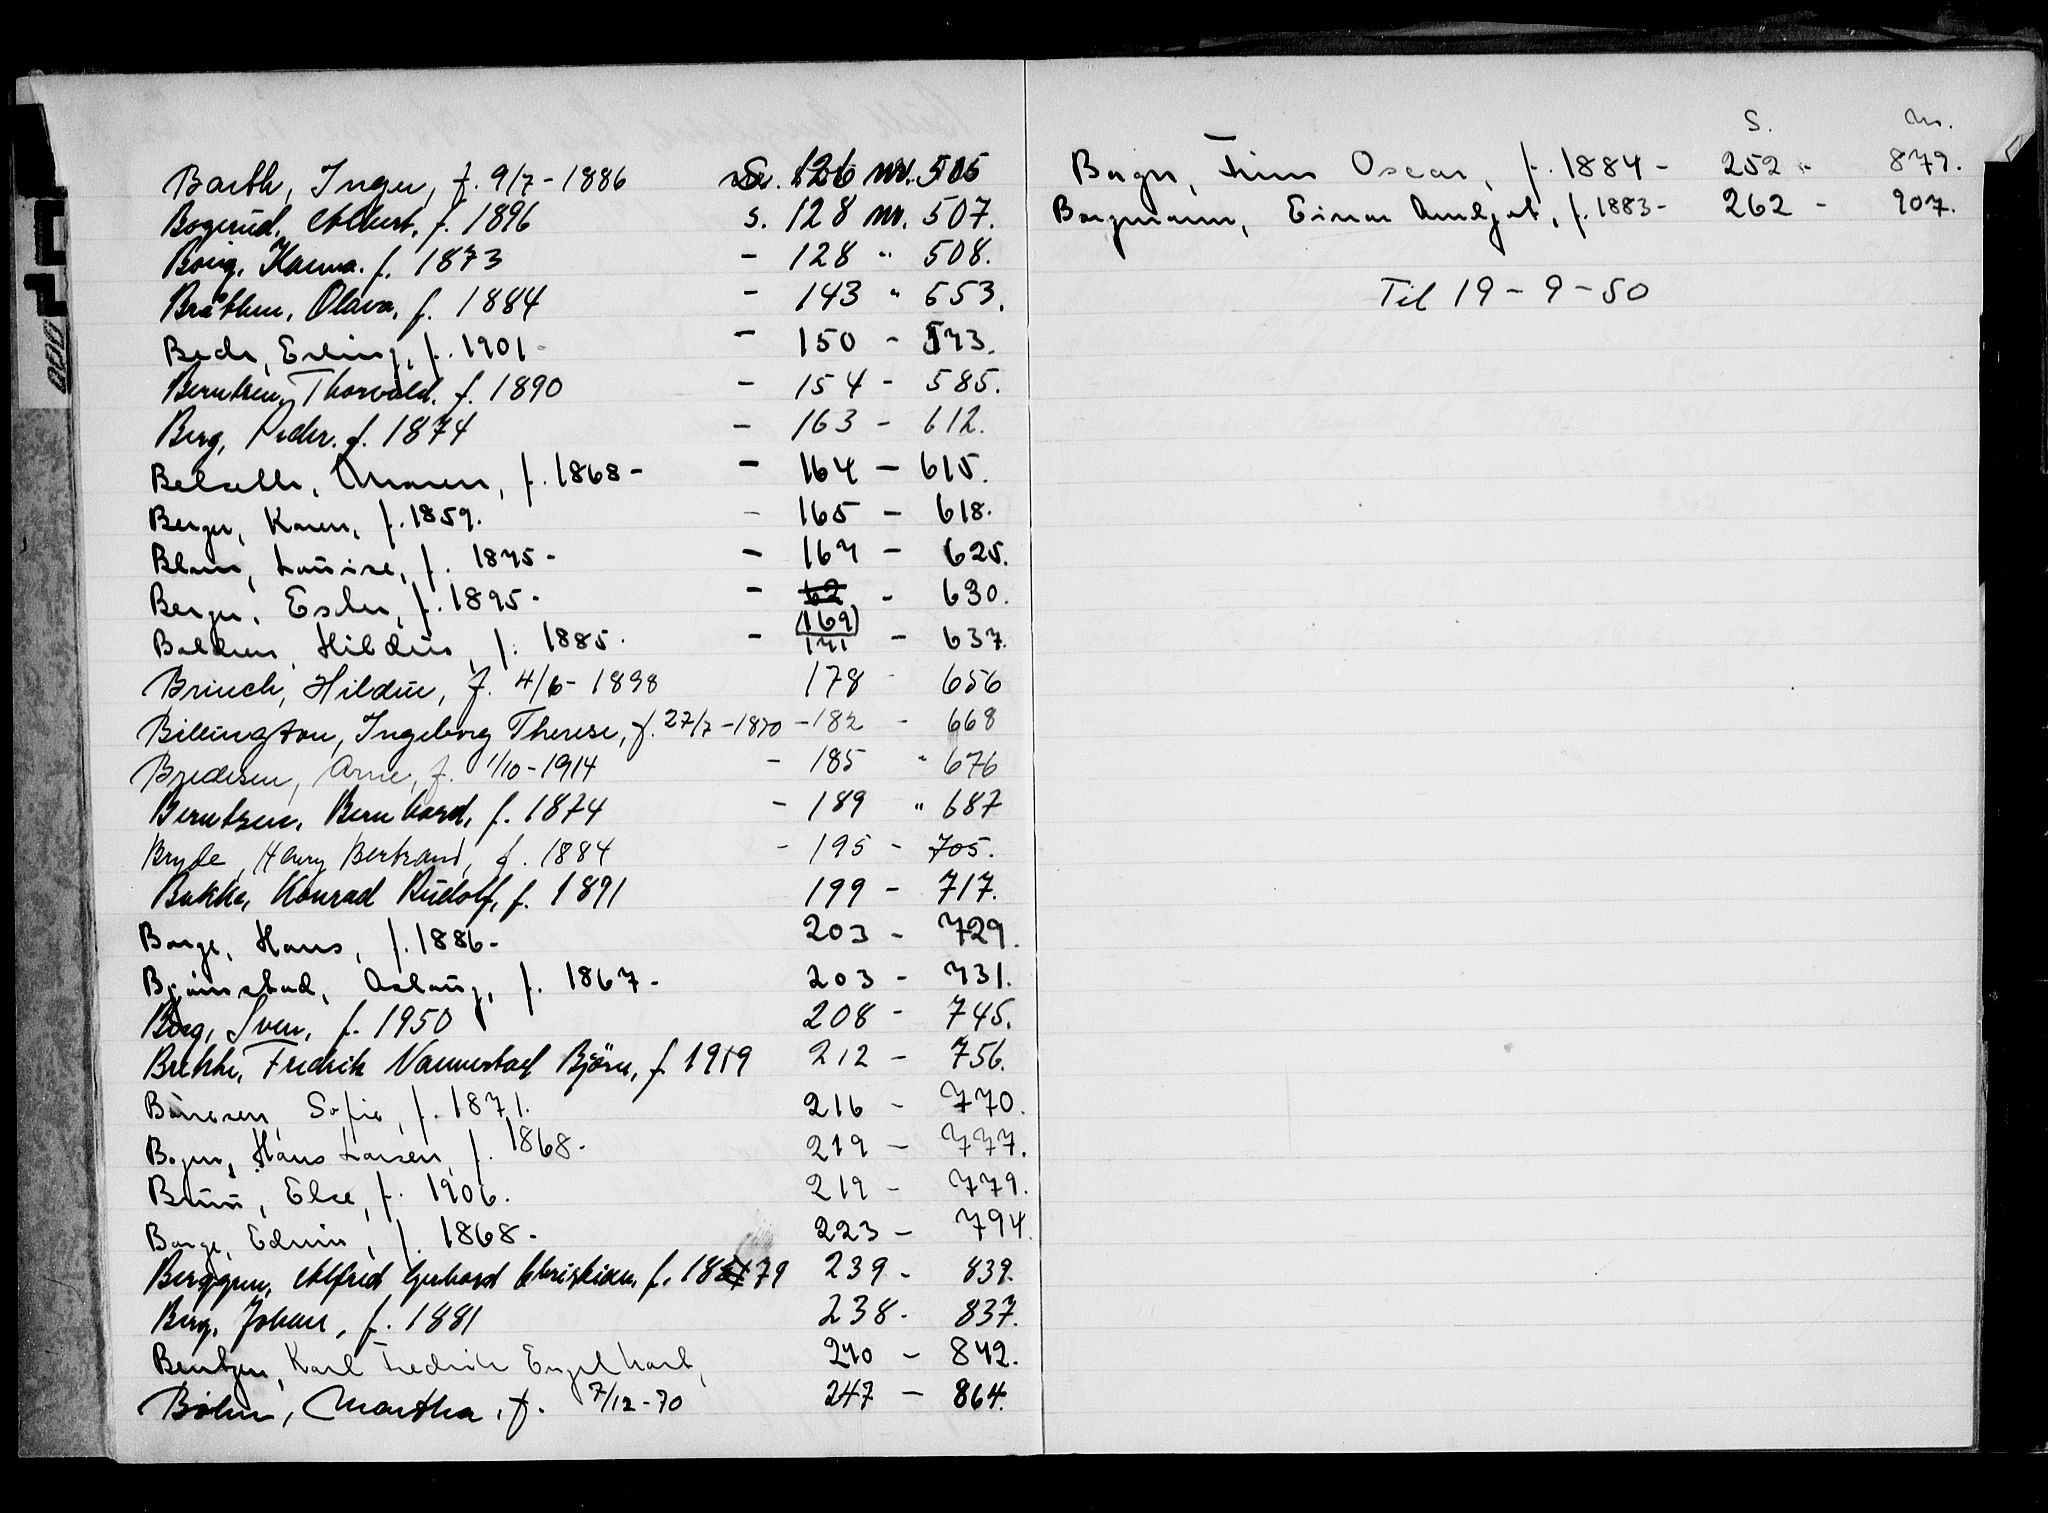 Barth, Inger, f. 9/7 - 1886 S. 126 nr. 505
Bogerud, Albert, f. 1896 s. 128 nr. 507.
Boug, Hanna. f. 1873 - 128 " 508.
Bråthen, Olava, f. 1884 - 143 " 553.
Bech, Erling, f. 1901 - - 150 - 573.
Berntsen, Thorvald. f. 1890 - 154 - 585.
Berg, Peder. f. 1874 - 163 - 612.
Belseth, Maren, f. 1868 - - 164 - 615.
Berger, Karen, f. 1859. - 165 - 618.
Louise, f. 1875 - - 167 - 625.
Berger, Esther, f. 1895 - - 62 - 630.
(169)
Hildur, f. 1885. - 171 - 637.
Brinch, Hildur, f. 4/6 - 1898 178 - 656
Billington, Ingeborg Therese, f. 27/7 - 1870 - 182 - 668
Bredesen, Arne, f. 1/10 - 1914 - 185 " 676
Berntzen, Bernhard, f. 1874 - 189 " 687
Bryde, Henry Bertrand, f. 1884 - 195 - 705.
Bakke, Konrad Rudolf, f. 1891 199 - 717.
Borge, Hans, f. 1886 - 203 - 729.
Bjørnstad, Aslaug, f. 1867 - 203 - 731.
Borg, Sven, f. 1950 208 - 745.
Bekke, Fredrik Vannerstad Björn, f. 1919 212 - 756.
Sofie, f. 1871. 216 - 770.
Hans Larsen, f. 1868 - 219 - 777.
Bruu, Else, f. 1906. 219 - 779.
Borge, Edwin, f. 1868 - 223 - 794.
Berggren, Alfred Gerhard Christian, f. 1879 239 - 839.
Berg, Johan, f. 1881 238 - 837.
Bentzen, Karl Fredrik Engelhart, 240 - 842.
Bøhn, Martha, f. 7/12 - 70 247 - 864.
S. nr.
Finn Oscar, f. 1884 - 252 - 879.
Borgmann, Einar f. 1883 - 262 - 907.
Til 19 - 9 - 50